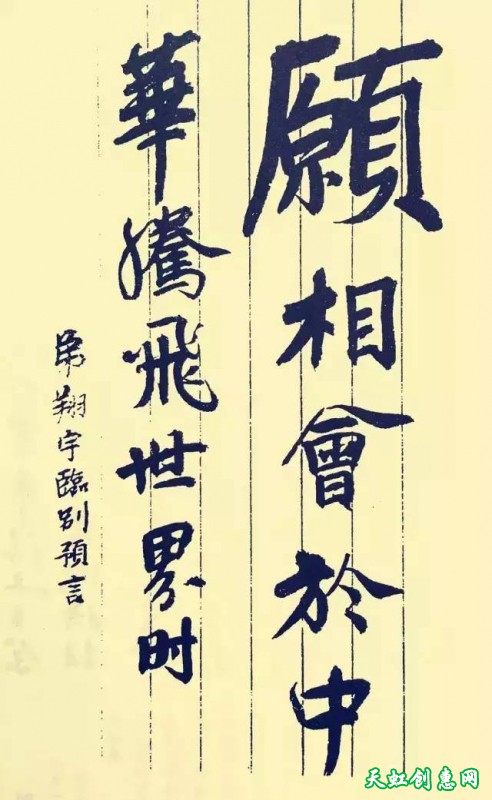 願相會於中
華騰飛世界时
弟翔宇臨別預言
天虹创惠网